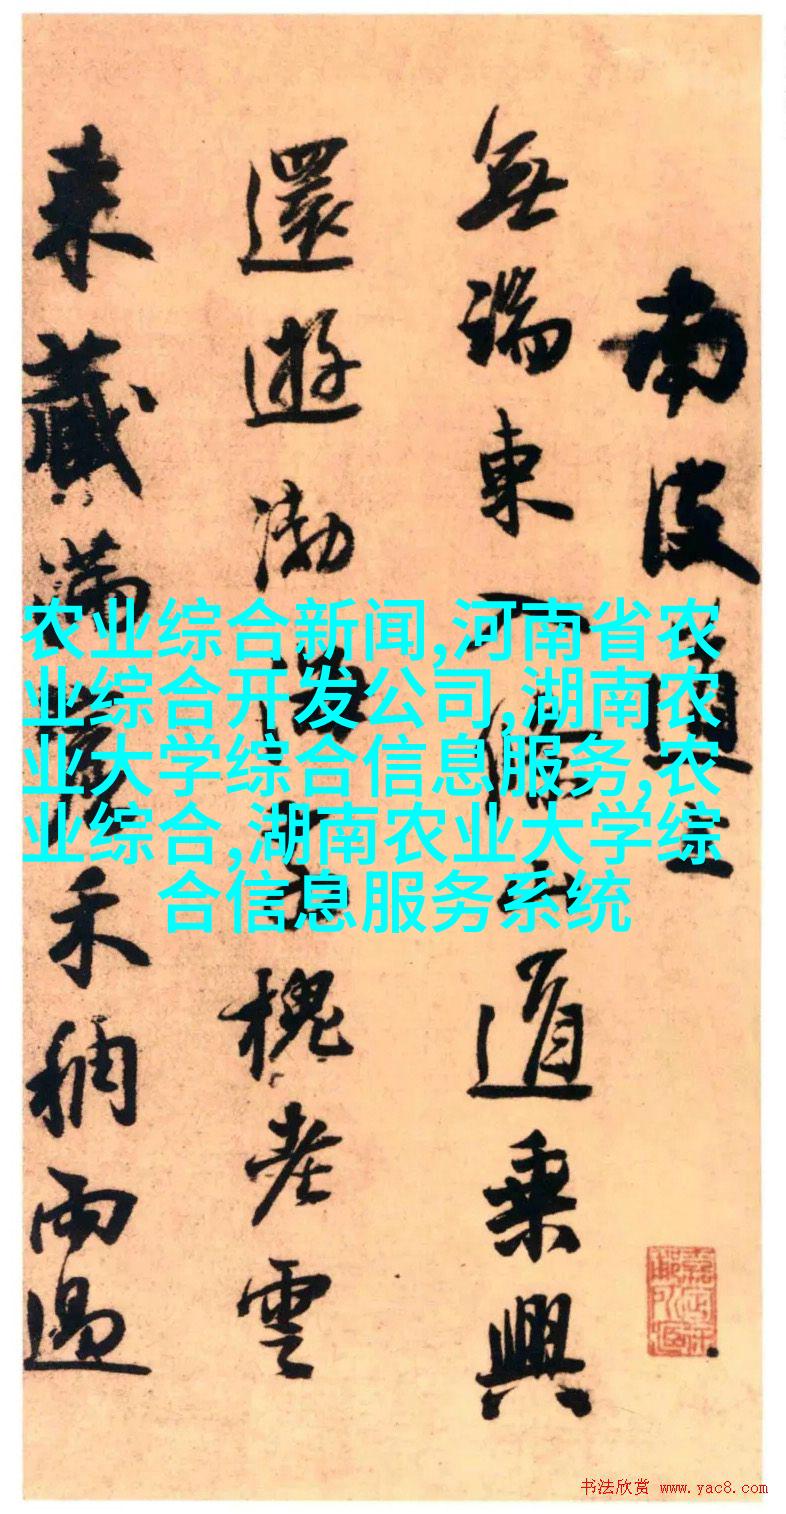 南皮道上
無端東道乘興
還遊渤海槐老雲
來藏滿禾稠雨過
农业综合新闻,河南省农
业综合开发公司,湖南农
业大学综合信息服务,农
业综合,湖南农业大学综
合信息服务系统
书法欣赏 www.yac8.com